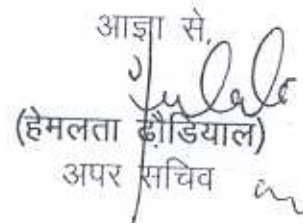 आज्ञा से,
(हेमलता ढौंडियाल)
अपर सचिव